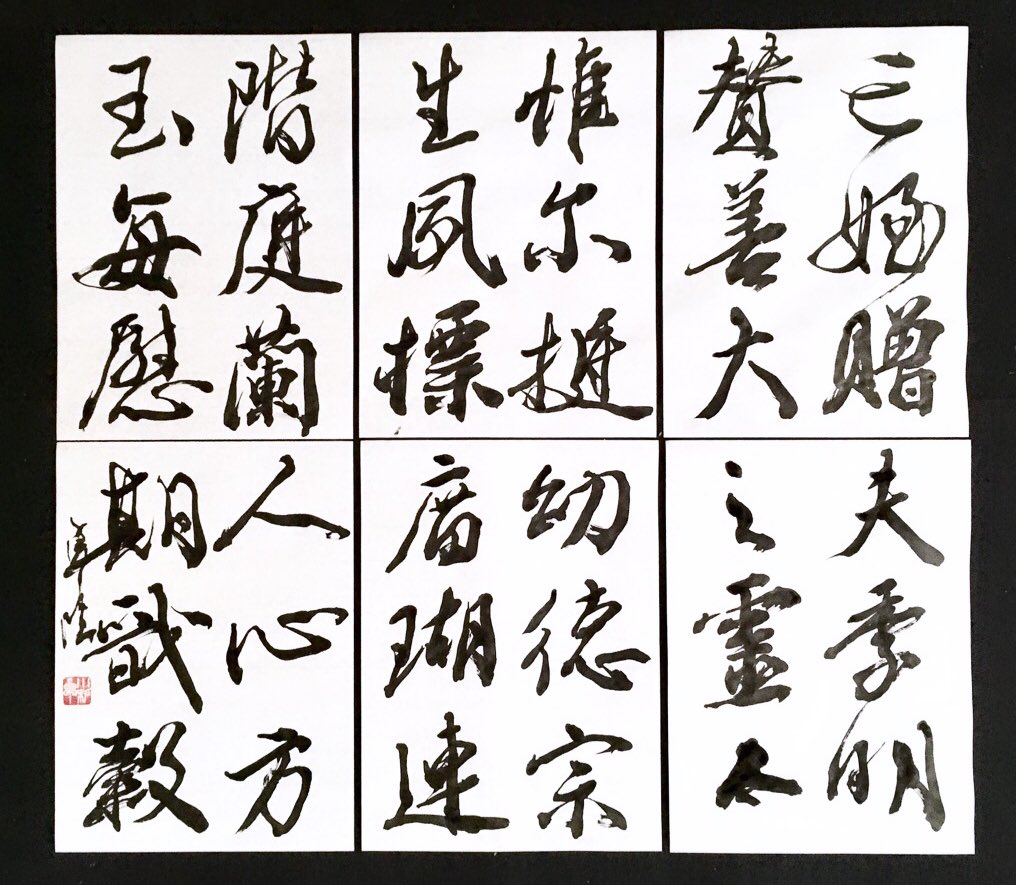 亡姪贈
贊善大
夫季明
之靈
惟尔挺
生夙標
幼德宗
庿瑚連
階庭蘭
玉每慰
人心方
期戩穀